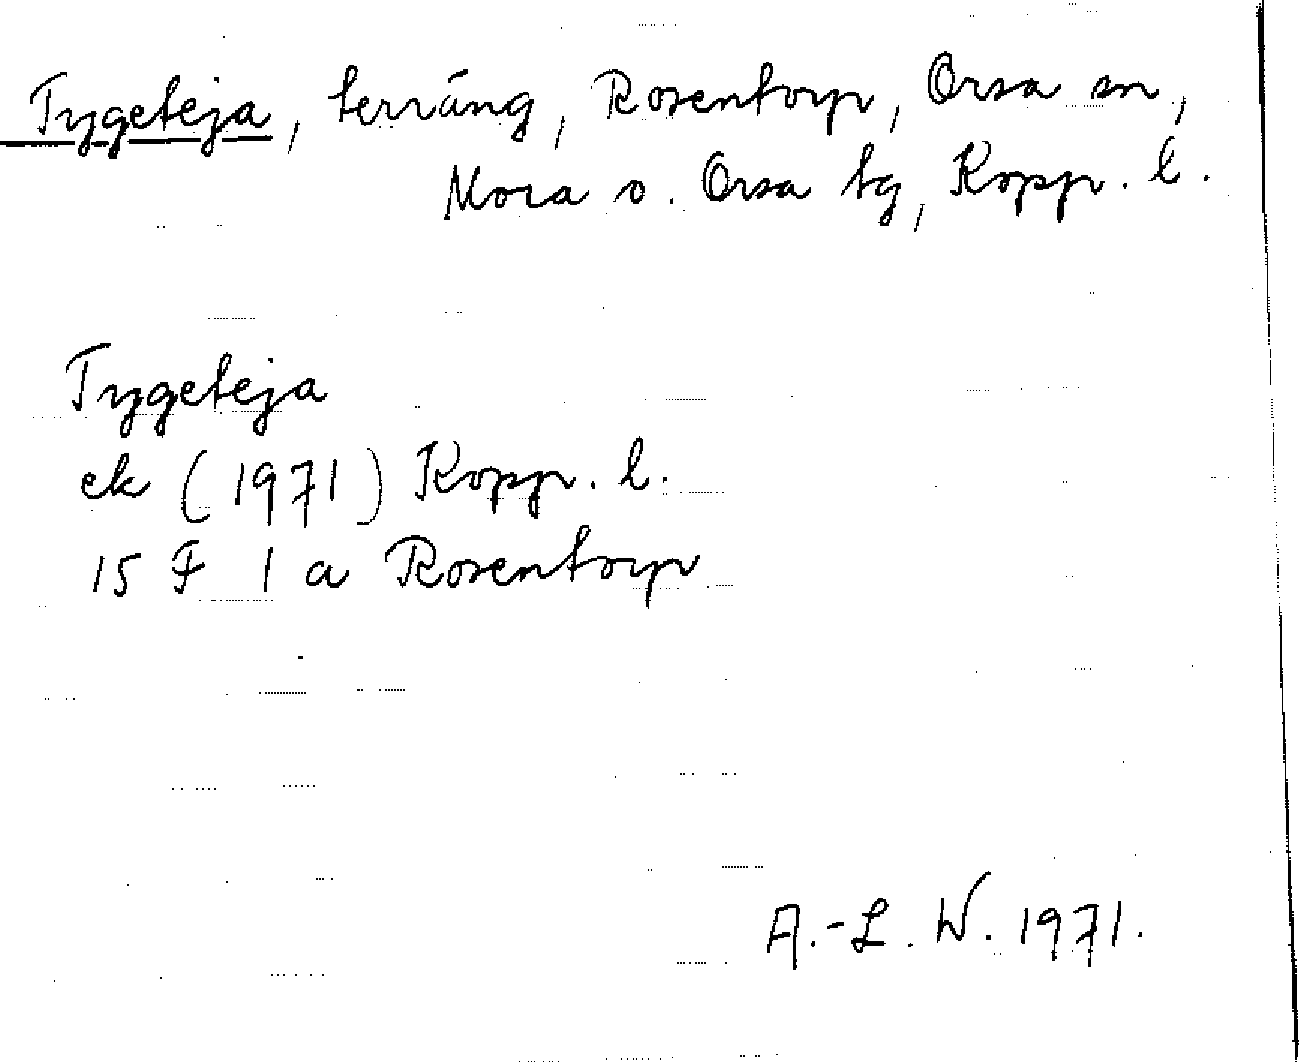 Tygeteja, terräng, Rosentorp, Orsa sn,
Mora o. Orsa tg, Kopp. l.
Tygeteja
ek (1971) Kopp. l.
15 F 1 a Rosentorp
A.-L. W. 1971.